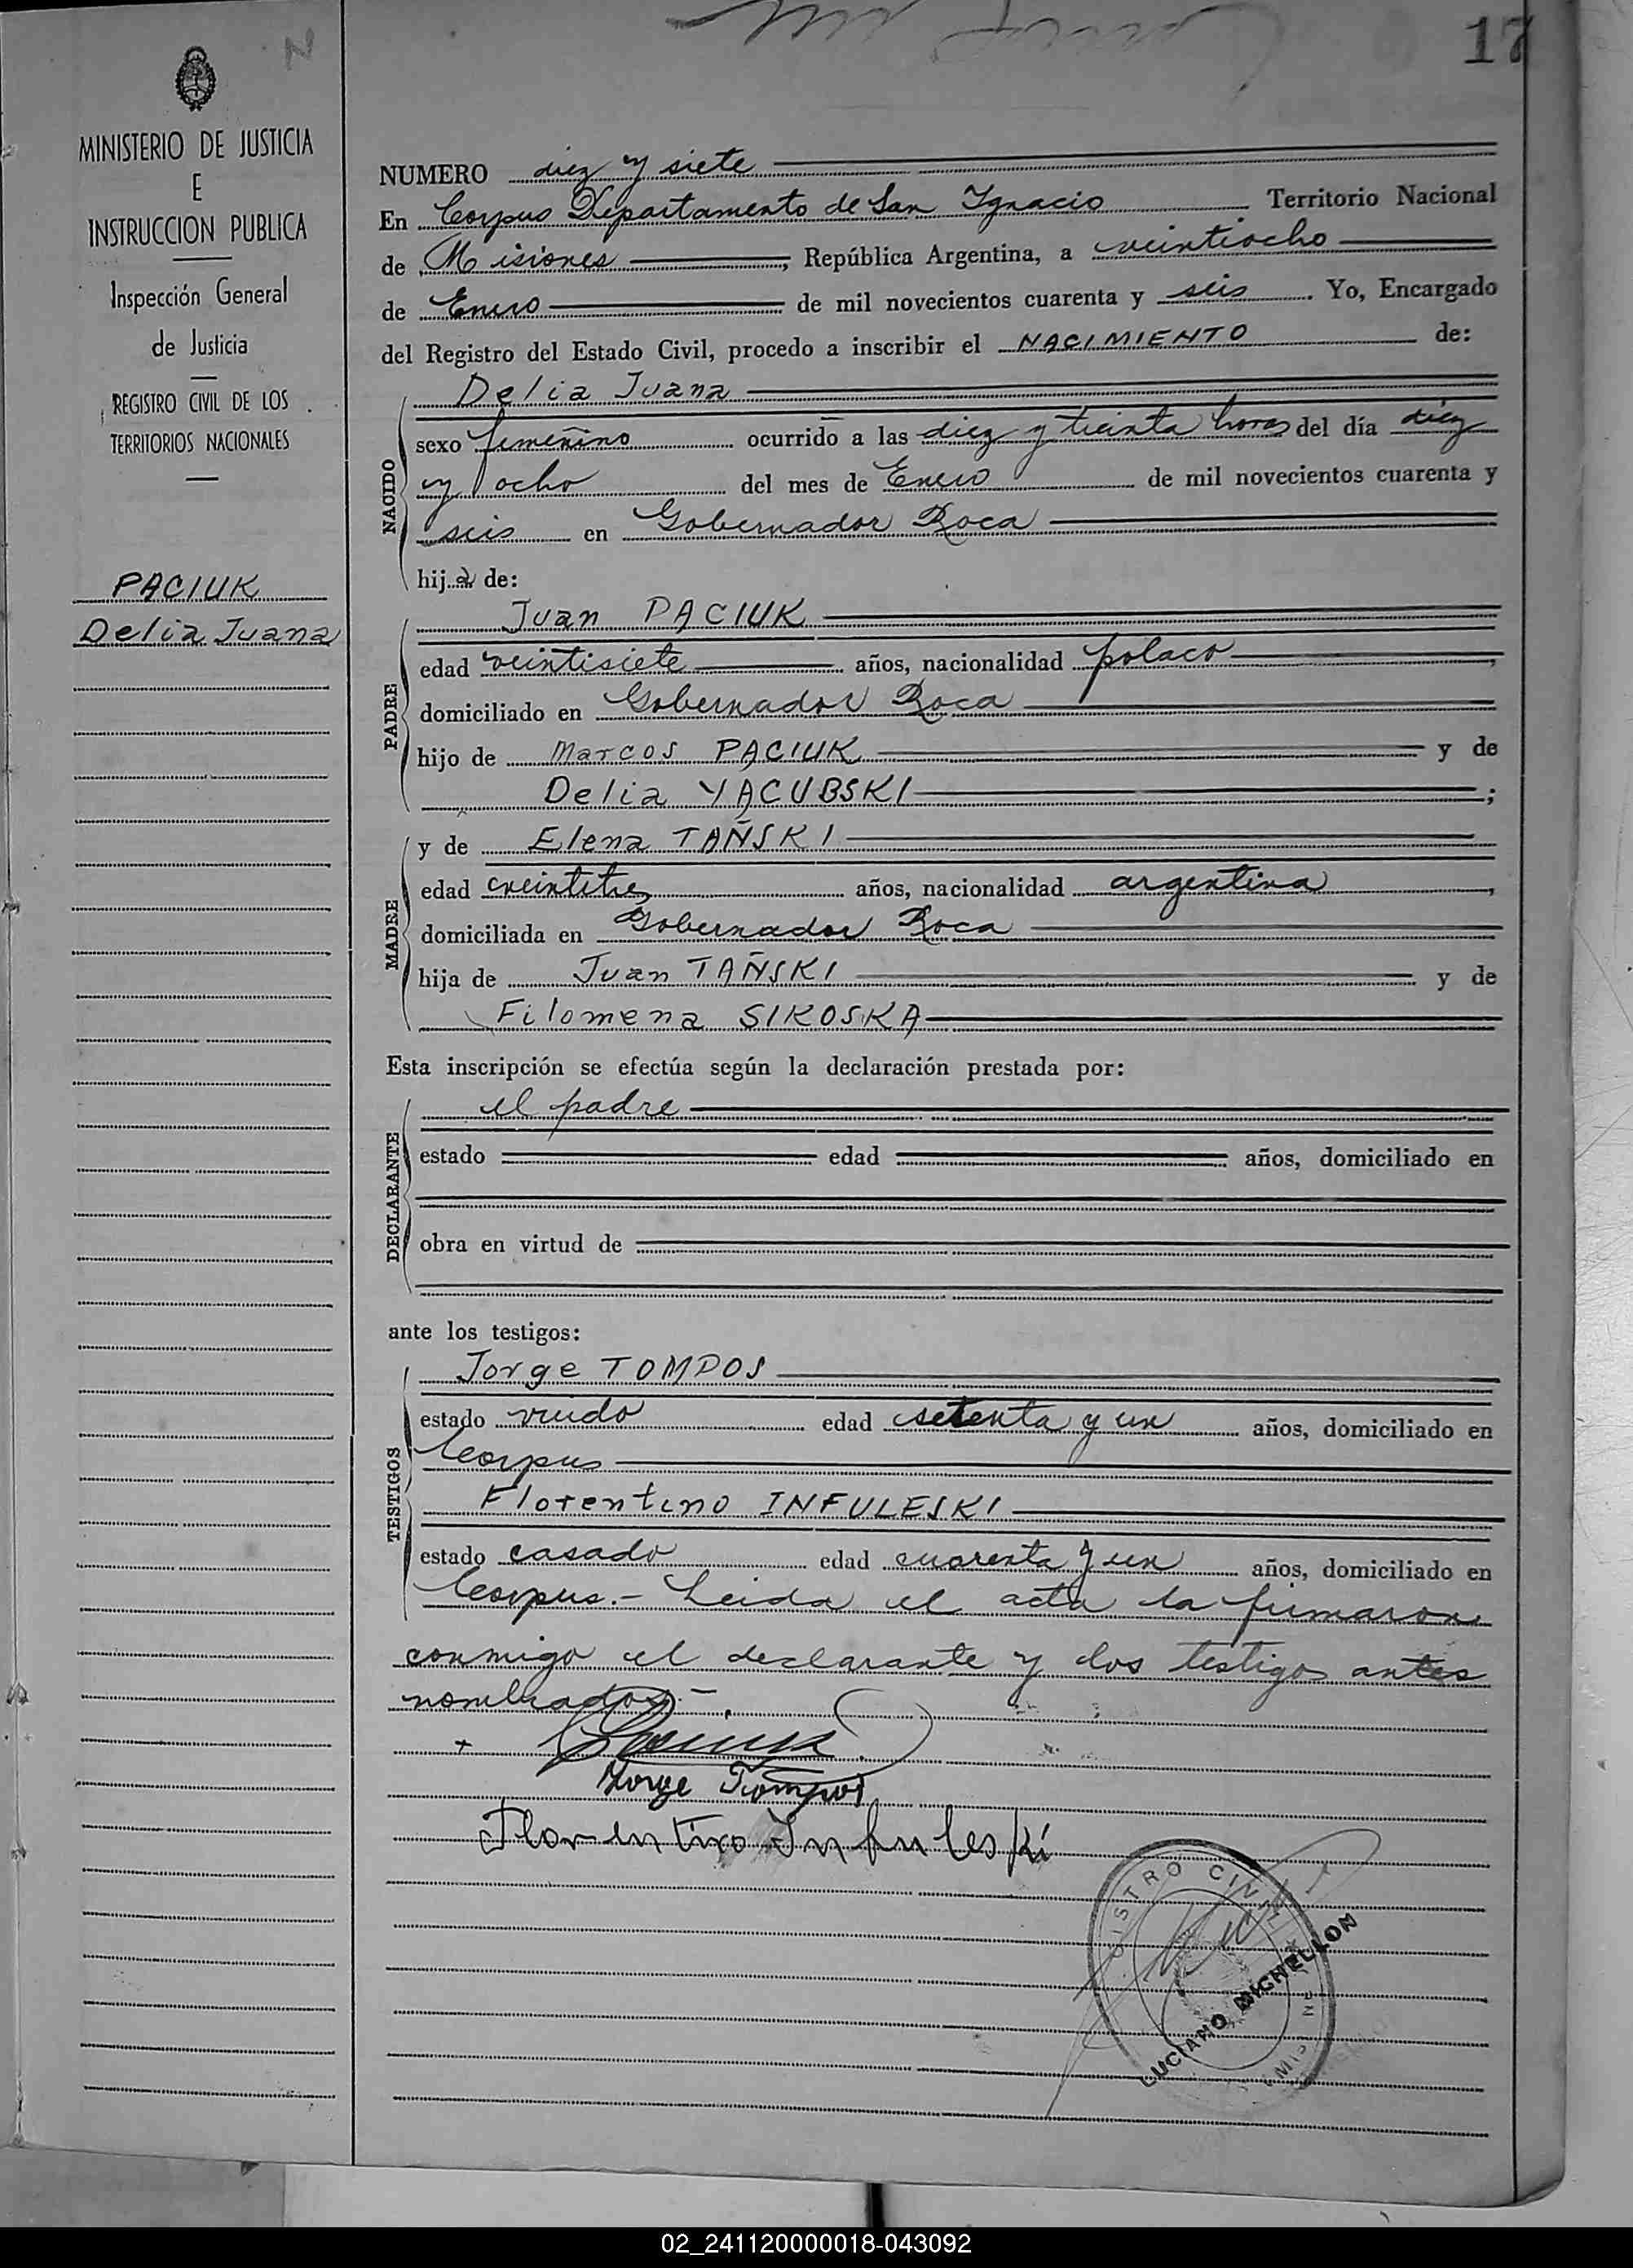 17
MINISTERIO DE JUSTICIA
E
INSTRUCCION PUBLICA
Inspección General
de Justicia
REGISTRO CIVIL DE LOS
TERRITORIOS NACIONALES
PACIUK
Delia Juana
NUMERO diez y siete
En Corpus Departamento de San Ignacio Territorio Nacional
de Misiones, República Argentina, a veintiocho
de Enero de mil novecientos cuarenta y seis. Yo, Encargado
del Registro del Estado Civil, procedo a inscribir el NACIMIENTO de:
NACIDO
Delia Juana
sexo femenino ocurrido a las diez y treinta horas del día diez
y ocho del mes de Enero de mil novecientos cuarenta y
seis en Gobernador Roca
hija de:
PADRE
Juan PACIUK
edad veintisiete años, nacionalidad polaco,
domiciliado en Gobernador Roca
hijo de Marcos PACIUK y de
Delia YACUBSKI;
MADRE
y de Elena TAÑSKI
edad veintitres años, nacionalidad argentina,
domiciliada en Gobernador Roca
hija de Juan TAÑSKI y de
Filomena SIKOSKA
Esta inscripción se efectúa según la declaración prestada por:
DECLARANTE
el padre
estado edad años, domiciliado en
obra en virtud de
ante los testigos:
TESTIGOS
Jorge TOMPOS
estado viudo edad setenta y un años, domiciliado en
Corpus
Florentino INFULESKI
estado casado edad cuarenta y un años, domiciliado en
Corpus.- Leida el acta la firmaron
conmigo el declarante y los testigos antes
nombrados.-
Paciuk
Jorge Tompos
Florentino Infuleski
LUCIANO MIGNELLON
02_241120000018-043092